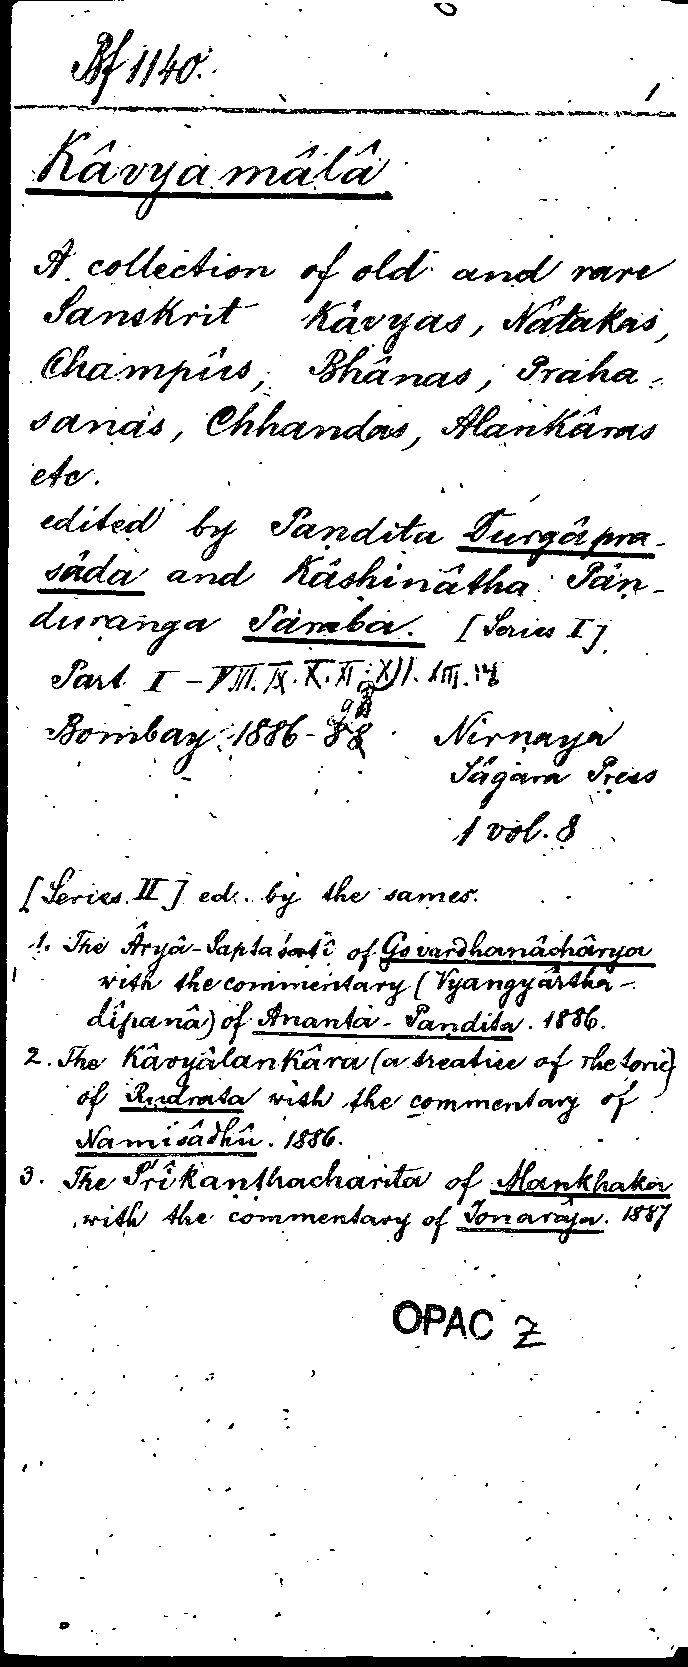 Bf 1140.
1
Kâvyamâlâ
A collection of old and rare
Sanskrit Kâvyas, Nâtakas,
Champûs, Bhânas, Praha-
sanas, Chhandas, Alankâras
etc.
edited by Pandita Durgâpra-
sâda and Kâshinâtha Pân-
duranga Paraba. [Series I]
Part I - VIII. IX. X. XI. XII. XIII. 14
Bombay 1886-88 Nirnaya
Sâgara Press
1 vol. 8
[Series II] ed. by the sames.
1. The Âryâ-Saptaśatî of Govardhanâchârya
with the commentary (Vyangyârtha-
dîpanâ) of Ananta-Pandita. 1886.
2. The Kâvyâlankâra (a treatise of rhetoric)
of Rudrata with the commentary of
Namisâdhû. 1886.
3. The Śrîkanthacharita of Mankhaka
with the commentary of Jonarâja. 1887
OPAC Z